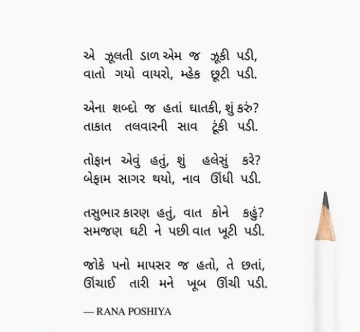 એ ઝૂલતી ડાળ એમ જ ઝૂકી પડી,
વાતો ગયો વાયરો, મ્હેક છૂટી પડી.
એના શબ્દો જ હતાં ઘાતકી, શું કરું?
તાકાત તલવારની સાવ ટૂંકી પડી.
તોફાન એવું હતું, શું હલેસું કરે?
બેફામ સાગર થયો, નાવ ઊંધી પડી.
તસુભાર કારણ હતું, વાત કોને કહું?
સમજણ ઘટી ને પછી વાત ખૂટી પડી.
જોકે પનો માપસર જ હતો, તે છતાં,
ઊંચાઈ તારી મને ખૂબ ઊંચી પડી.
— RANA POSHIYA